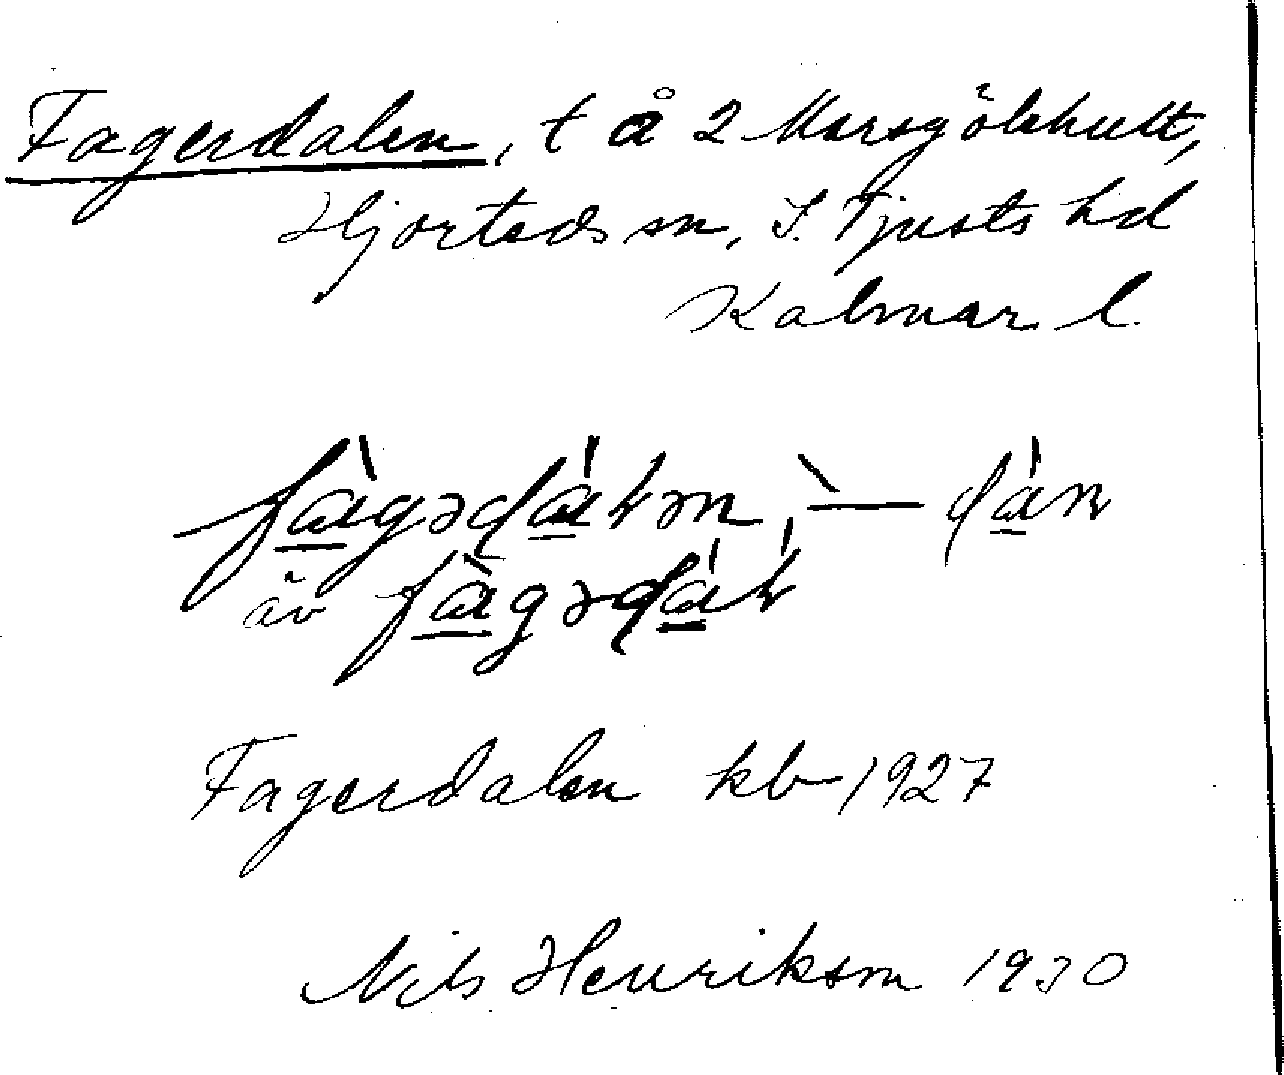 Fagerdalen, t å 2 Marsgölehult,
Hjorteds sn, S. Tjusts hd
Kalmar l.
äv
Fagerdalen kb 1927
Nils Henrikson 1930